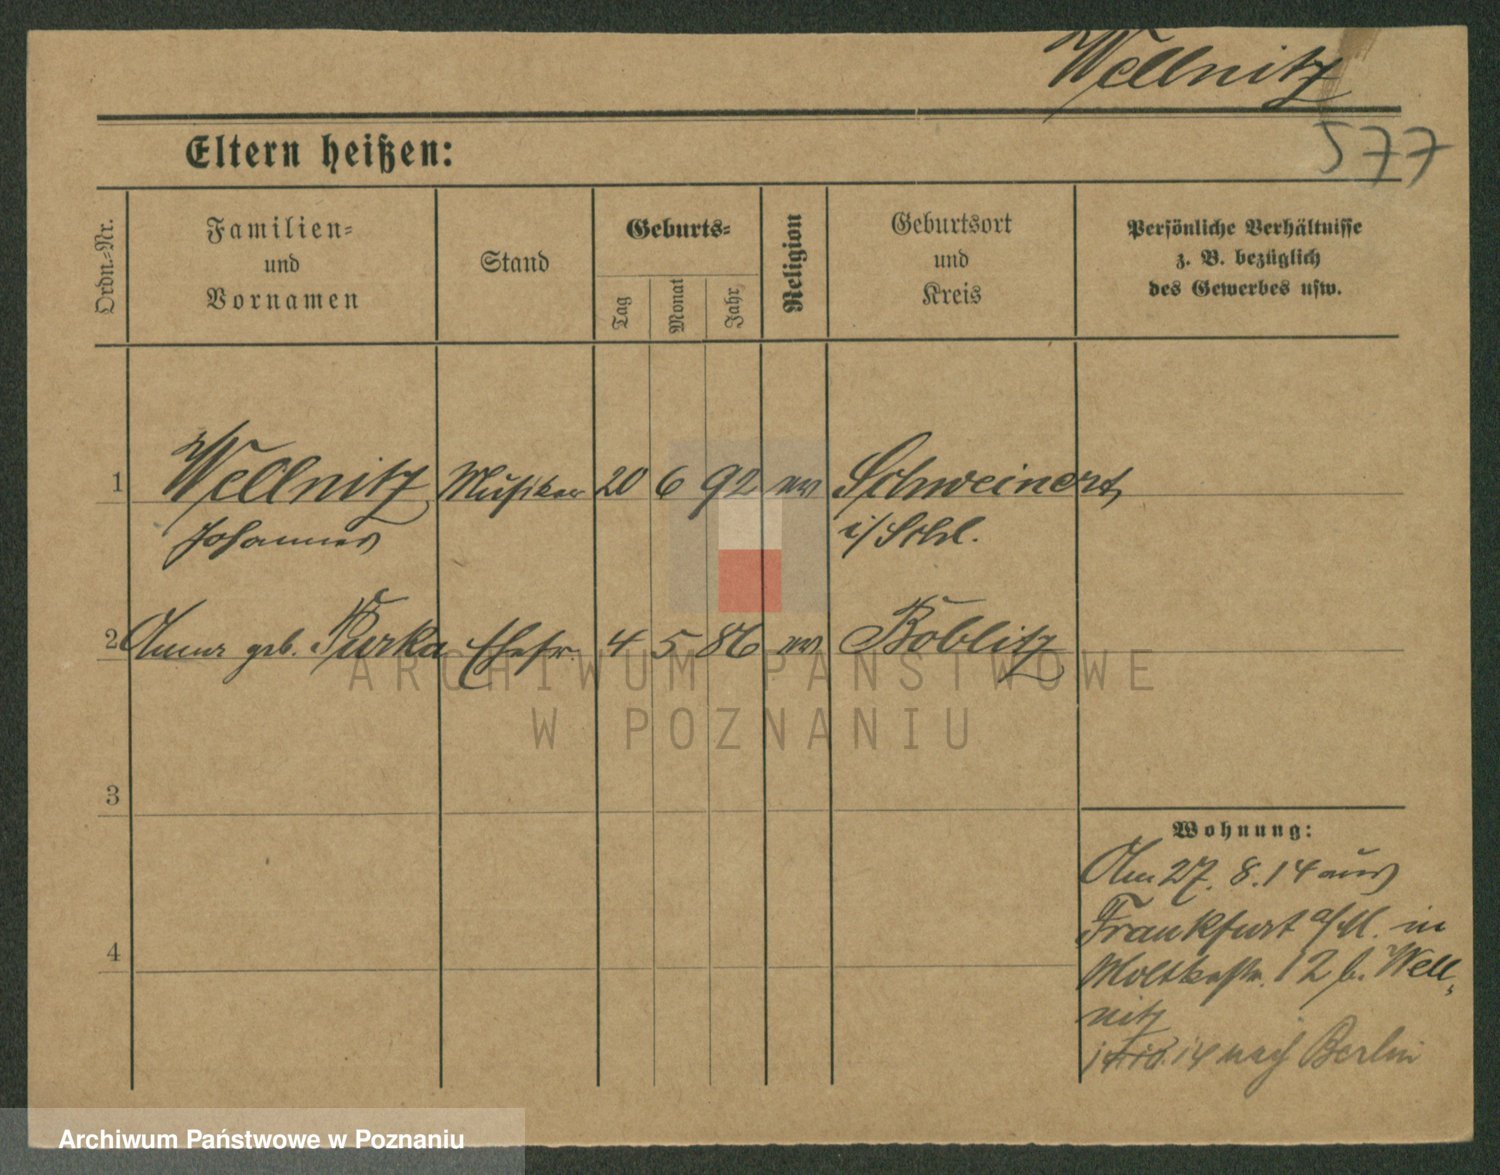 Wellnitz
577
Eltern heißen:
Ordn.-Nr.
Familien-
und
Vornamen
Stand
Geburts-
Tag
Monat
Jahr
Religion
Geburtsort
und
Kreis
Persönliche Verhältnisse
z. B. bezüglich
des Gewerbes usw.
1 Wellnitz Musiker 20 6 92 ev Schweinert
Johannes i/Schl.
2 Anna geb. Kurka Ehefr. 4 5 86 ev Koblitz
3
4
Wohnung:
Am 27. 8. 14 aus
Frankfurt a/M. in
Moltkestr. 12 b. Well-
nitz
14 nach Berlin
ARCHIWUM PAŃSTWOWE
W POZNANIU
Archiwum Państwowe w Poznaniu